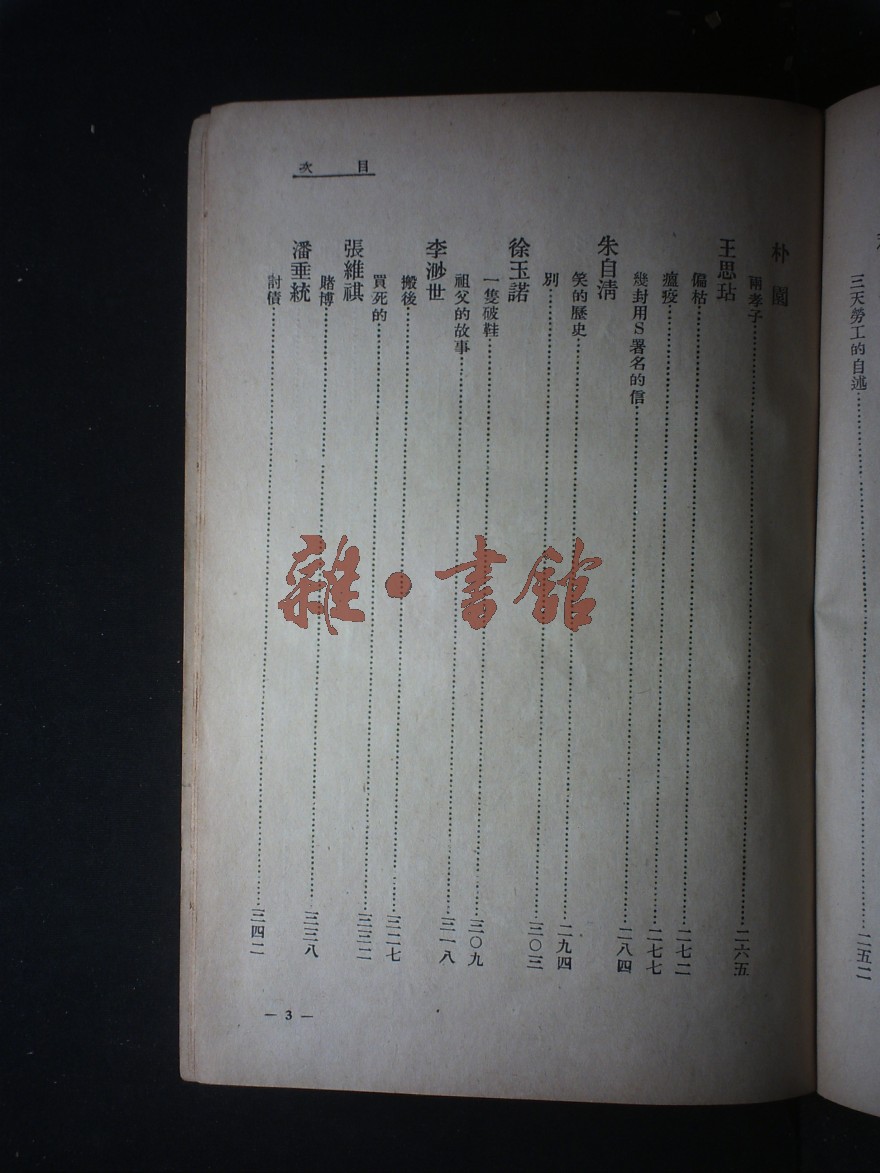 三天勞工的自述……二五二
目次
朴園
兩孝子……二六五
王思玷
偏枯……二七二
瘟疫……二七七
幾封用S署名的信……二八四
朱自淸
笑的歷史……二九四
別……三〇三
徐玉諾
一隻破鞋……三〇九
祖父的故事……三一八
李渺世
搬後……三二七
買死的……三三二
張維祺
賭博……三三八
潘垂統
討債……三四二
— 3 —
雜·書館